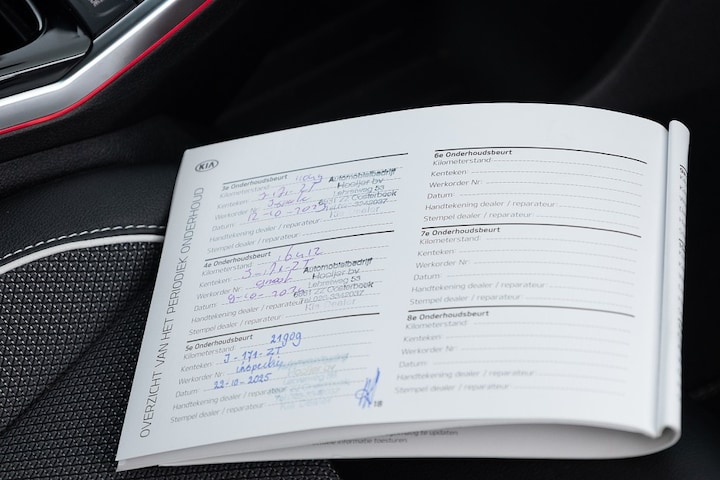 KIA
OVERZICHT VAN HET PERIODIEK ONDERHOUD
3e Onderhoudsbeurt
Kilometerstand
Kenteken:
Werkorder Nr
Datum: 12-10-2023
Handtekening dealer / reparateur
Stempel dealer / reparateur
Automobielbedrijf
Hooijer bv
Lehreweg 53
6861 ZZ Oosterbeek
4e Onderhoudsbeurt
Kilometerstand 16412
Kenteken:
Werkorder Nr
Datum: 9-10-2024
Handtekening dealer / reparateur
Stempel dealer / reparateur :
Automobielbedrijf
Hooijer bv
Lehreweg 53
6861 ZZ Oosterbeek
5e Onderhoudsbeurt
Kilometerstand: 21909
Kenteken: J-171-ZT
Werkorder Nr: inspectie
Datum: 22-10-2025
Handtekening dealer / reparateur
Stempel dealer / reparateur :
18
6e Onderhoudsbeurt
Kilometerstand:
Kenteken:
Werkorder Nr:
Datum:
Handtekening dealer / reparateur :
Stempel dealer / reparateur :
7e Onderhoudsbeurt
Kilometerstand:
Kenteken:
Werkorder Nr
Datum:
Handtekening dealer / reparateur :
Stempel dealer / reparateur :
8e Onderhoudsbeurt
Kilometerstand:
Kenteken:
Werkorder Nr:
Datum:
Handtekening dealer / reparateur :
Stempel dealer / reparateur :